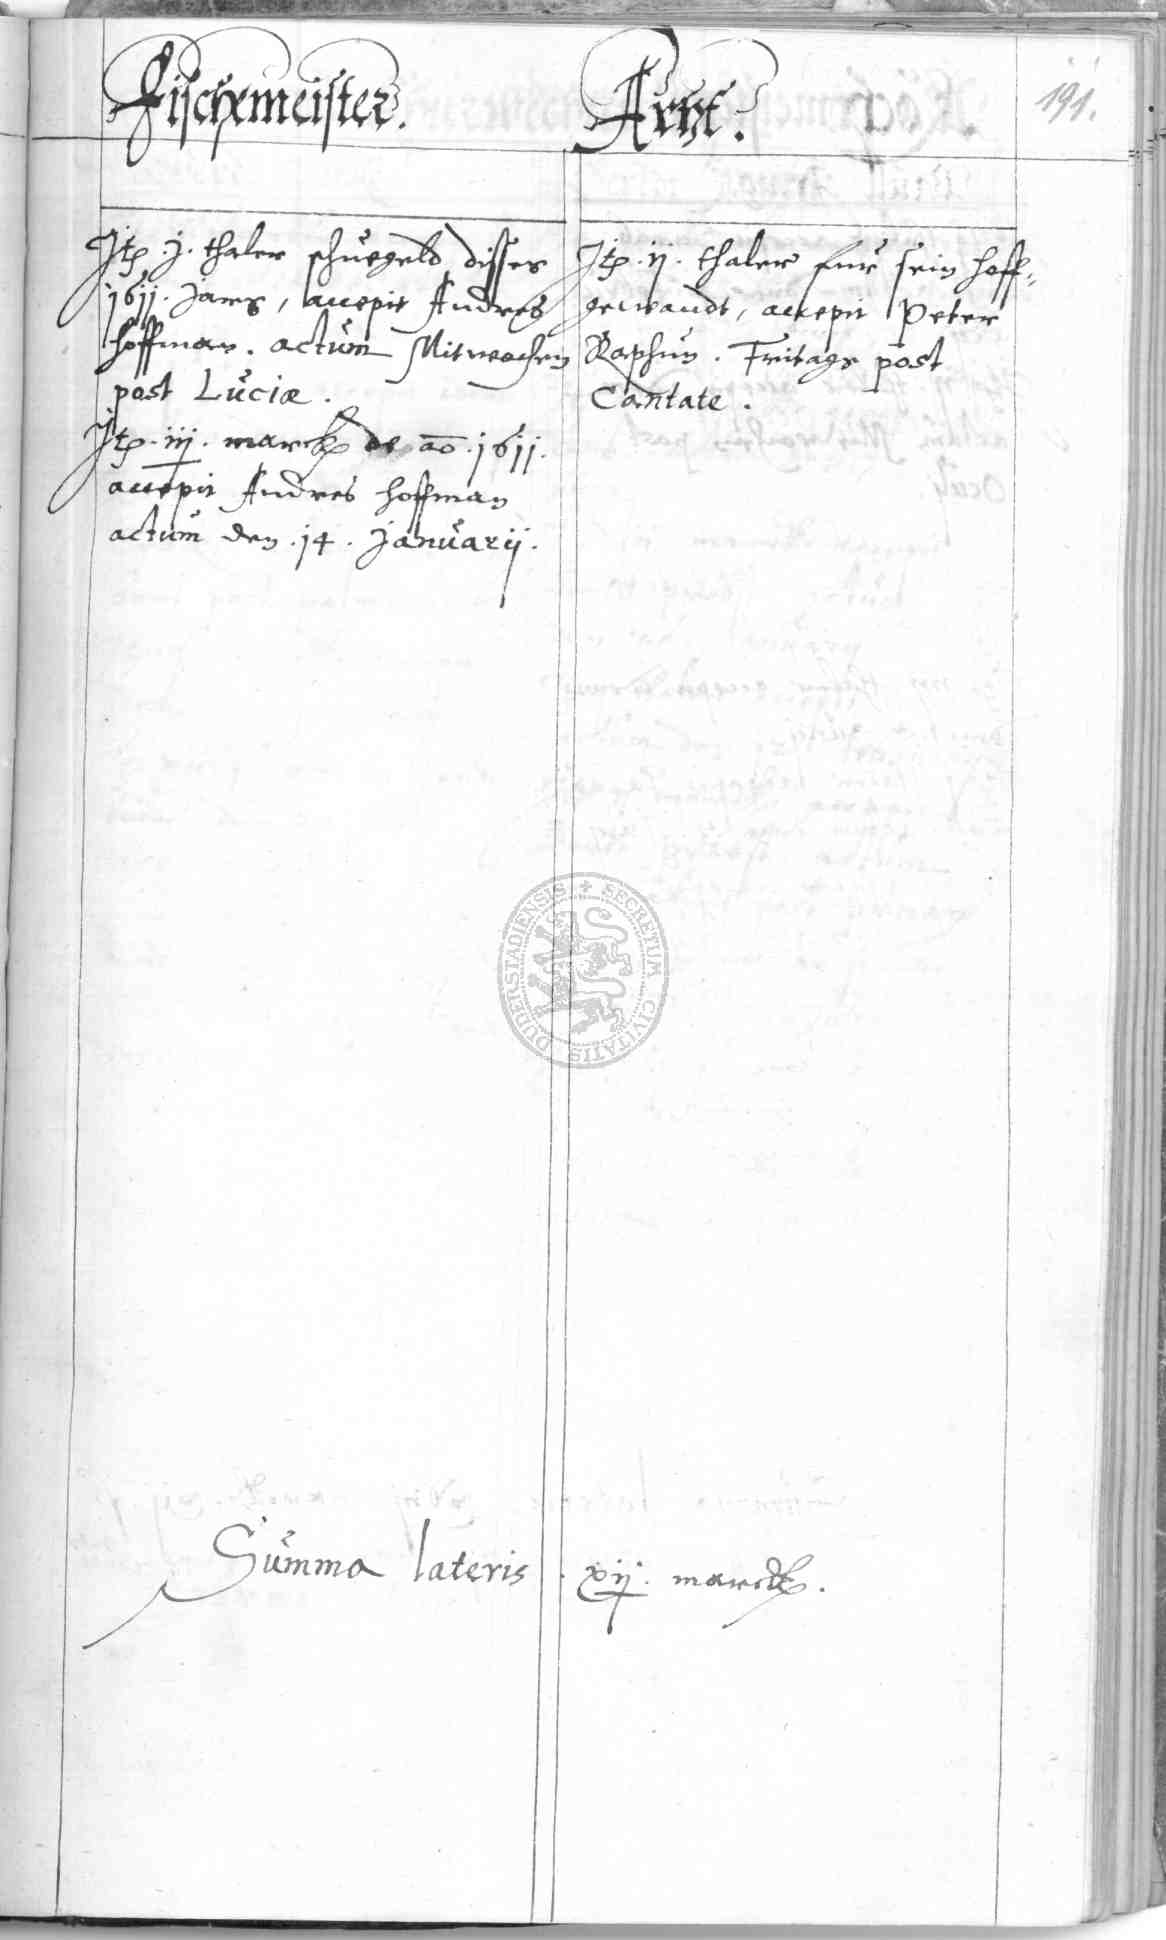 Fischmeister.
Jtem .j. thaler schuegeld disses
1611. Jars, accepit Andres
Hoffman. actum Mitwochen
post Luciæ.
Jtem .iij. marck de ao .1611.
accepit Andres Hoffman
actum den .14. Januarij.
Artzt.
191.
Jtem .ij. thaler fur sein hoff-
gewandt, accepit Peter
Raphun. Fritags post
Cantate.
SECRETUM CIVITATIS DUDERSTADIENSIS
Summa lateris . xij. marck.